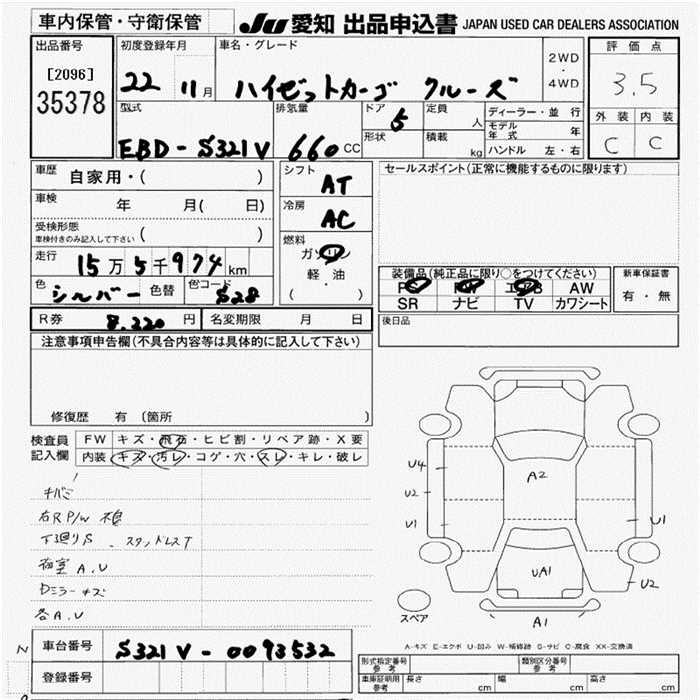 車内保管・守衛保管
JU 愛知 出品申込書 JAPAN USED CAR DEALERS ASSOCIATION
出品番号
[2096]
35378
初度登録年月
22 11月
車名・グレード
ハイゼットカーゴ クルーズ
2WD
・
4WD
評価点
3.5
外装 内装
C C
型式
EBD-S321V
排気量
660 CC
ドア
5
形状
定員
人
積載
kg
ディーラー・並行
モデル年式 年
ハンドル 左・右
車歴
自家用・( )
車検
年 月( 日)
受検形態
車検付きのみ記入して下さい ( )
走行
15万5千974km
色
シルバー
色替
色コード
S28
シフト
AT
冷房
AC
燃料
ガソリン
軽・油
( )
セールスポイント(正常に機能するものに限ります)
装備品(純正品に限り○をつけてください)
PS PW エアB AW
SR ナビ TV カワシート
新車保証書
有・無
R券 8.220 円
名変期限 月 日
後日品
注意事項申告欄(不具合内容等は具体的に記入して下さい)
修復歴 有(箇所 )
検査員
記入欄
FW キズ・飛石・ヒビ割・リペア跡・X要
内装 キズ・汚レ・コゲ・穴・スレ・キレ・破レ
右RP/W
下廻りS . スタッドレスT
荷室A.U
Dミラーキズ
各A.U
U4
U2
U1
A2
UA1
U1
U2
A1
スペア
A-キズ E-エクボ U-凹み W-補修跡 S-サビ C-腐食 XX-交換済
車台番号
S321V-0093532
登録番号
型式指定番号
参考
類別区分番号
参考
車庫証明用
参考
長さ cm
幅 cm
高さ cm